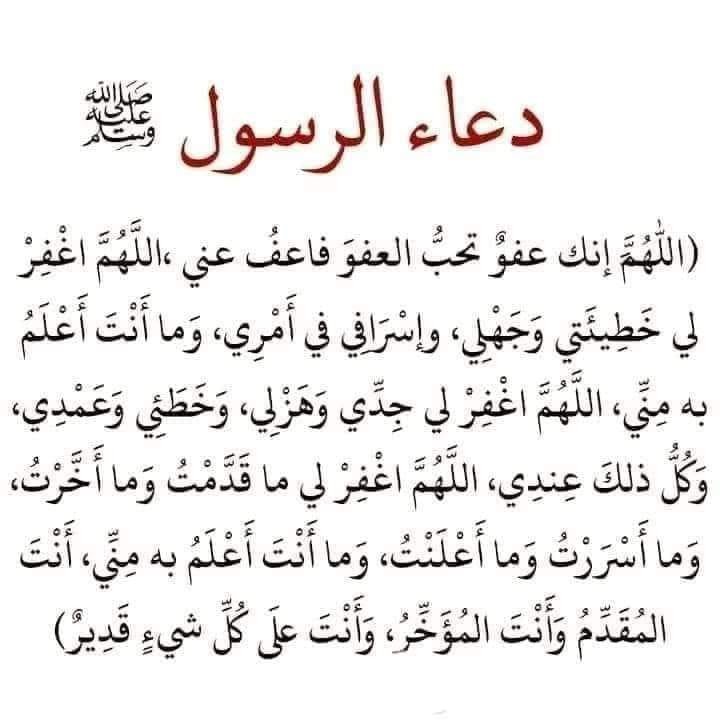 دعاء الرسول ﷺ
(اللهُمَّ إنك عفوٌ تحبُّ العفوَ فاعفُ عني ،اللَّهُمَّ اغْفِرْ
لي خَطِيئَتي وَجَهْلِي، وإسْرَافِي في أَمْرِي، وَما أَنْتَ أَعْلَمُ
به مِنِّي، اللَّهُمَّ اغْفِرْ لي جِدِّي وَهَزْلِي، وَخَطَئِي وَعَمْدِي،
وَكُلُّ ذلكَ عِندِي، اللَّهُمَّ اغْفِرْ لي ما قَدَّمْتُ وَما أَخَّرْتُ،
وَما أَسْرَرْتُ وَما أَعْلَنْتُ، وَما أَنْتَ أَعْلَمُ به مِنِّي، أَنْتَ
المُقَدِّمُ وَأَنْتَ المُؤَخِّرُ، وَأَنْتَ علَى كُلِّ شيءٍ قَدِيرٌ)